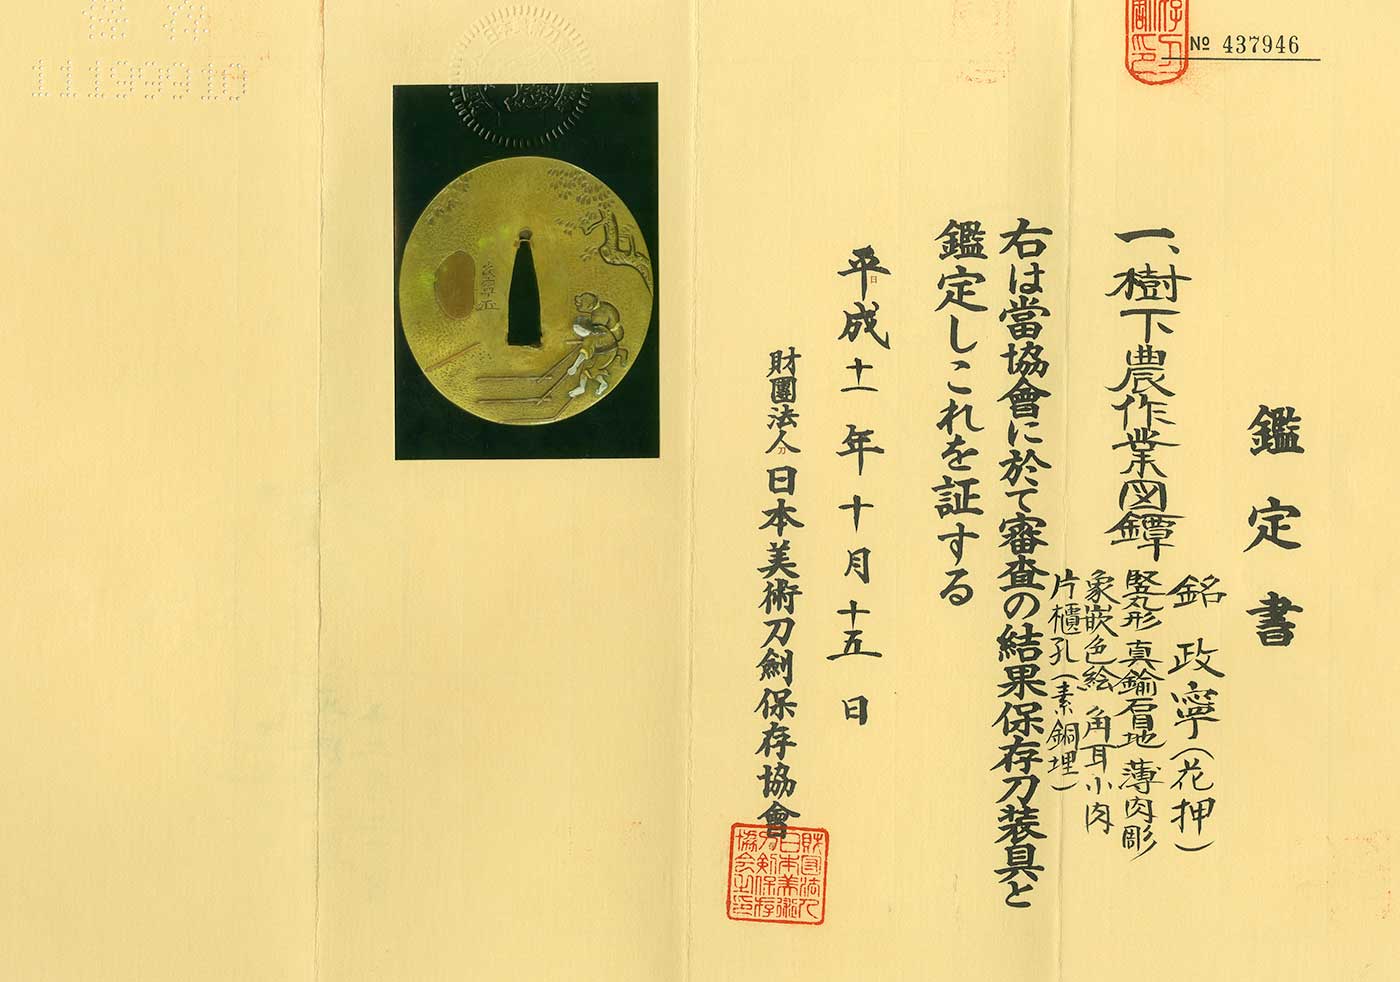 № 437946
鑑定書
一、樹下農作業図鐔
銘 政寧(花押)
竪丸形 真鍮石目地 薄肉彫
象嵌色絵 角耳小肉
片櫃孔(素銅埋)
右は當協會に於て審査の結果保存刀装具と
鑑定しこれを証する
平成十一年十月十五日
財團法人日本美術刀劍保存協會
財団法人
日本美術
刀剣保存
協会之印
保存
11199910